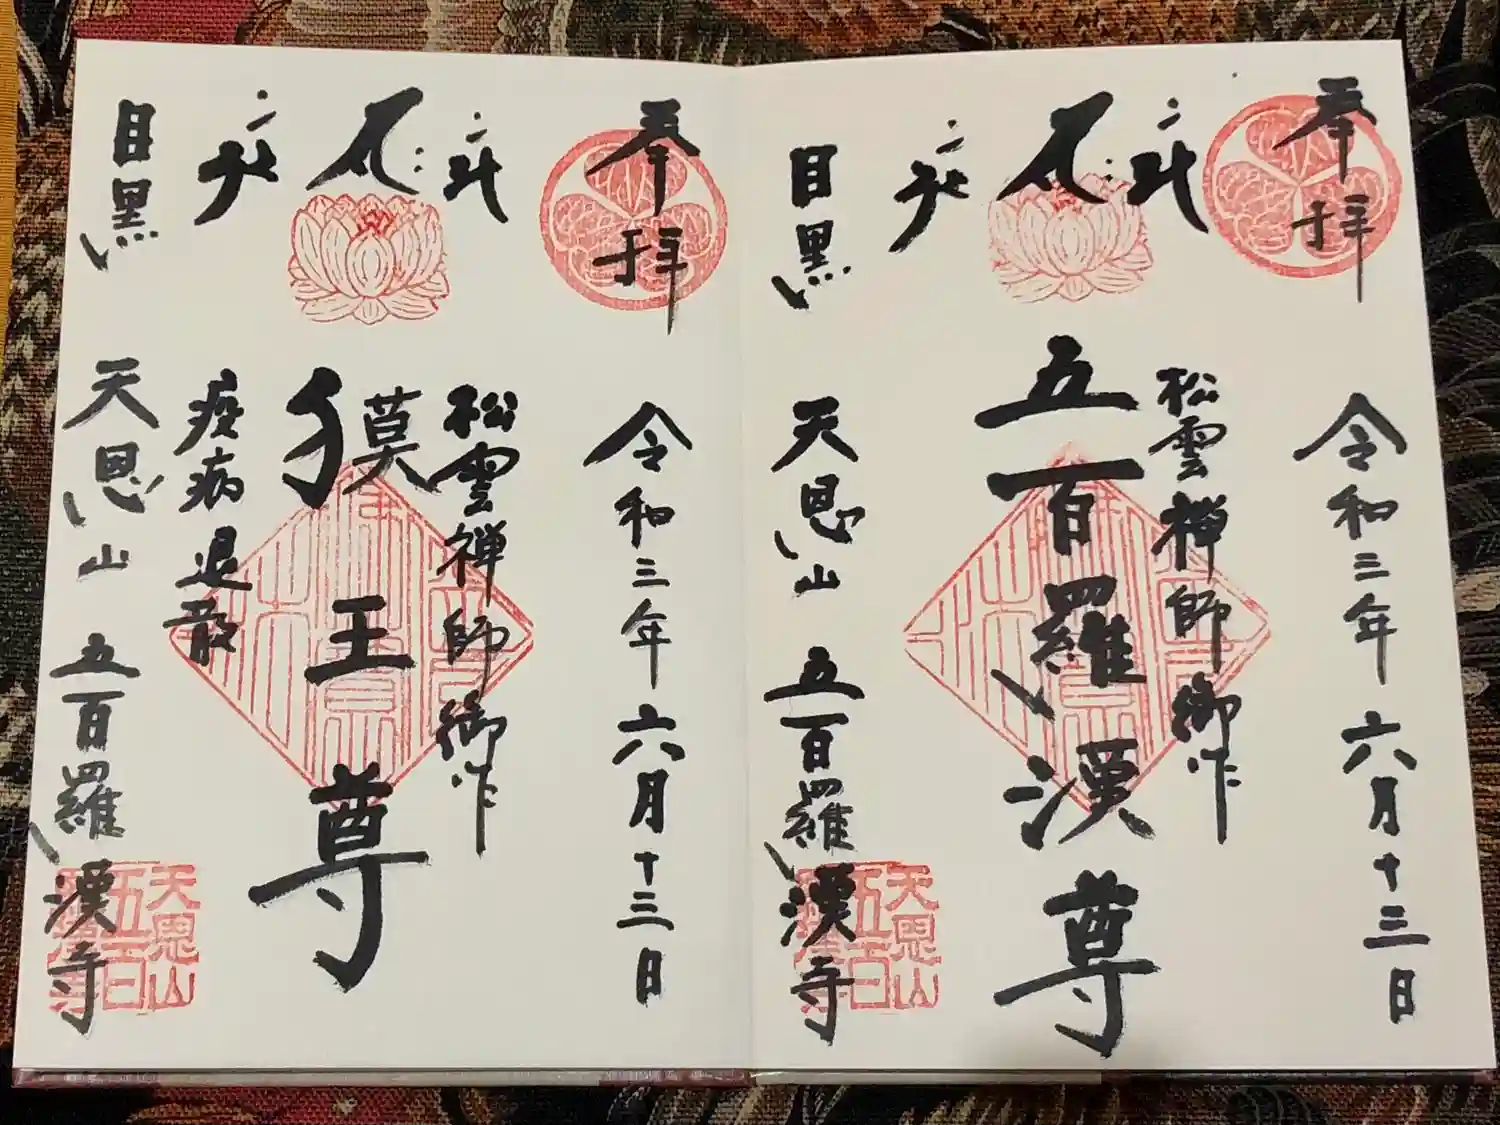 奉拝
令和三年六月十三日
松雲禅師御作
五百羅漢尊
目黒
天恩山
五百羅漢寺
天恩山
五百
奉拝
令和三年六月十三日
松雲禅師御作
獏王尊
疫病退散
目黒
天恩山
五百羅漢寺
天恩山
五百